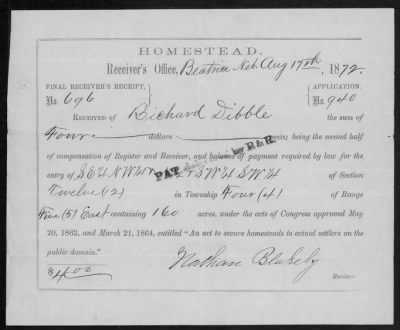 HOMESTEAD.
Receiver's Office, Beatrice Neb Aug 19th, 1872.
FINAL RECEIVER'S RECEIPT, APPLICATION,
No. 696 No. 940
RECEIVED OF Richard Dibble the sum of
Four dollars cents; being the second half
of compensation of Register and Receiver, and balance of payment required by law for the
entry of S E ¼ N W ¼ S W ¼ S W ¼ of Section
Twelve (12) in Township Four (4) of Range
Five (5) East containing 160 acres, under the acts of Congress approved May
20, 1862, and March 21, 1864, entitled "An act to secure homesteads to actual settlers on the
public domain."
$4.00 Nathan Blakely
Receiver
PAT by R&R.